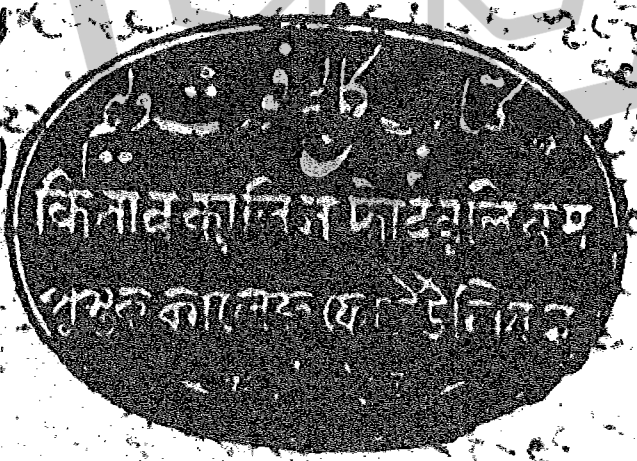 کتاب کالج فورت ولیم
किताब कालिज
পুস্তক কালেজ ফোর্ট উলিয়ম